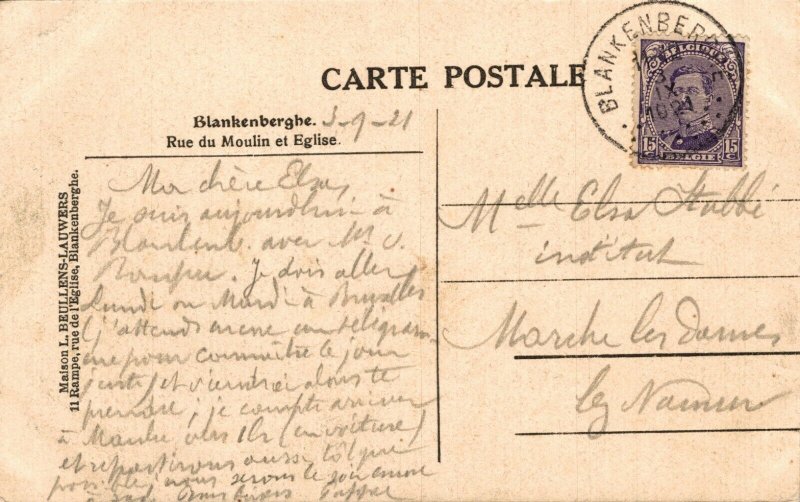 CARTE POSTALE
BLANKENBERGHE
BELGIQUE
15 15
C C
BELGIE
Blankenberghe. 3-9-21
Rue du Moulin et Eglise.
Maison L. BEULLENS-LAUWERS
11 Rampe, rue de l'Eglise, Blankenberghe.
Ma chère Elsa,
Je suis aujourdhui à
avec M.
Je dois aller
Lundi ou Mardi à Bruxelles
(j'attends encore un télégram-
me pour connaître le jour
juste) et viendrai alors te
prendre; je compte arriver
à vers 11h (en voiture)
et repartirons aussi tôt que
possible, nous serons le soir encore
à
Melle Elsa Stabbé
institut
Marche les Dames
lez Namur